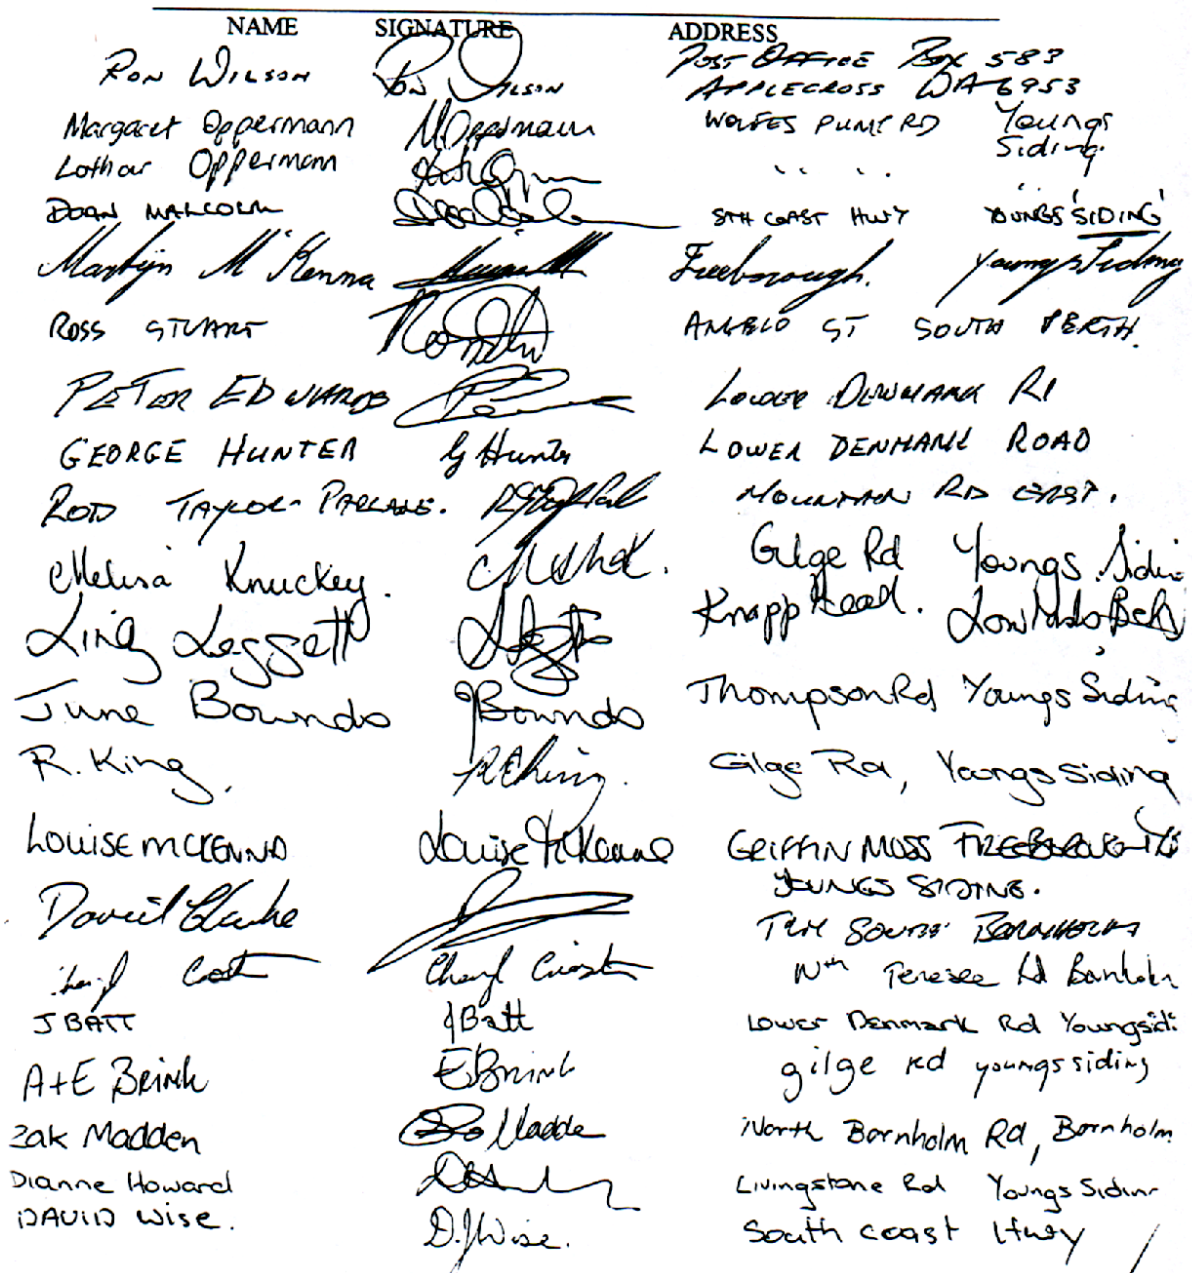 NAME SIGNATURE ADDRESS
RON WILSON Ron Wilson POST OFFICE Box 583
APPLECROSS WA 6953
Margaret Oppermann M Oppermann WOLFES PUMP RD Youngs
Siding
Lothar Oppermann " " " "
DOAN MALCOLM STH COAST HWY YOUNGS SIDING
Martijn McKenna Freeborough. Youngs Siding
ROSS STUART ANGELO ST SOUTH PERTH.
PETER EDWARDS LOWER DENMARK RD
GEORGE HUNTER G Hunter LOWER DENMARK ROAD
ROD TAYLOR-PARLANE. MOUNTAIN RD EAST.
Melissa Knuckey. Gilge Rd Youngs Sidin
Ling Leggett Knapp Head. Lowlands Bch
June Bownds J Bownds Thompson Rd Youngs Siding
R. King, R E King. Gilge Rd, Youngs Siding
LOUISE MCKENNA Louise McKenna GRIFFIN MOSS FREEBOROUGH
YOUNGS SIDING.
David Clarke SOUTH BORNHOLM
Cheryl Nth Rd Bornholm
J BATT J Batt Lower Denmark Rd Youngsidi
A+E Brink E Brink gilge rd youngs siding
Zak Madden Madde North Bornholm Rd, Bornholm
Dianne Howard Livingstone Rd Youngs Siding
DAVID Wise. D.J Wise. South coast Hwy